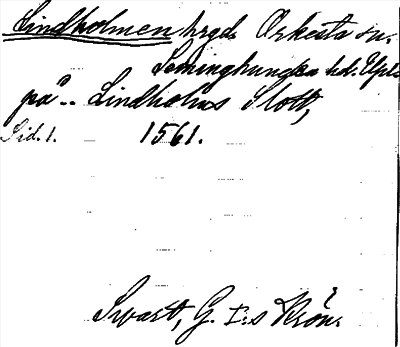 Lindholmen hrgd. Orkesta sn.
Seminghundra hd. Upl.
på.. Lindholms Slott,
Sid. 1. 1561.
Swart, G. I:s Krön.